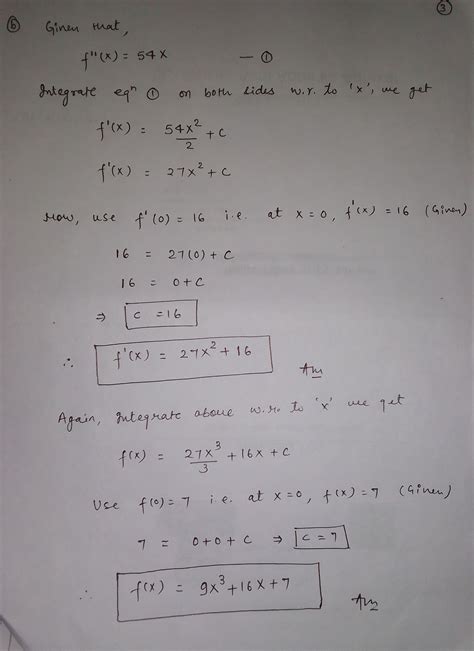 ③
⑥ Given that,
f''(x) = 54x — ①
Integrate eqⁿ ① on both sides w.r. to 'x', we get
f'(x) = 54x²/2 + c
f'(x) = 27x² + c
Now, use f'(0) = 16 i.e. at x = 0, f'(x) = 16 (Given)
16 = 27(0) + c
16 = 0 + c
⇒ c = 16
∴ f'(x) = 27x² + 16
Ans
Again, Integrate above w.r. to 'x' we get
f(x) = 27x³/3 + 16x + c
Use f(0) = 7 i.e. at x = 0, f(x) = 7 (Given)
7 = 0 + 0 + c ⇒ c = 7
∴ f(x) = 9x³ + 16x + 7
Ans